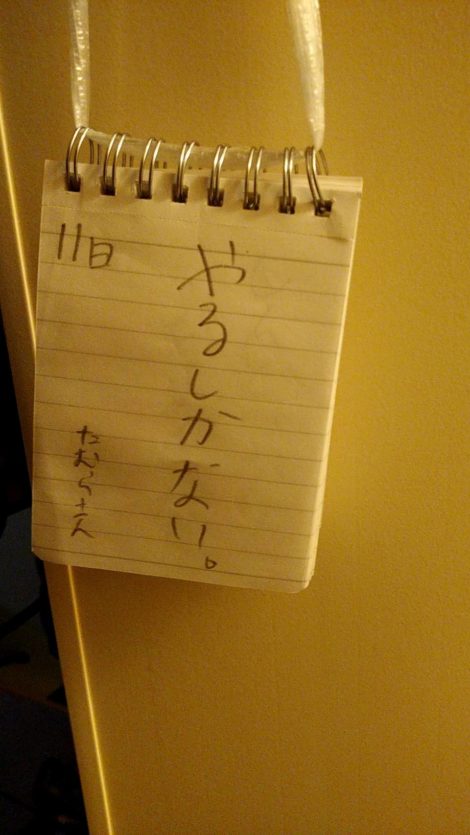 11日
やるしかない。
たむらさん